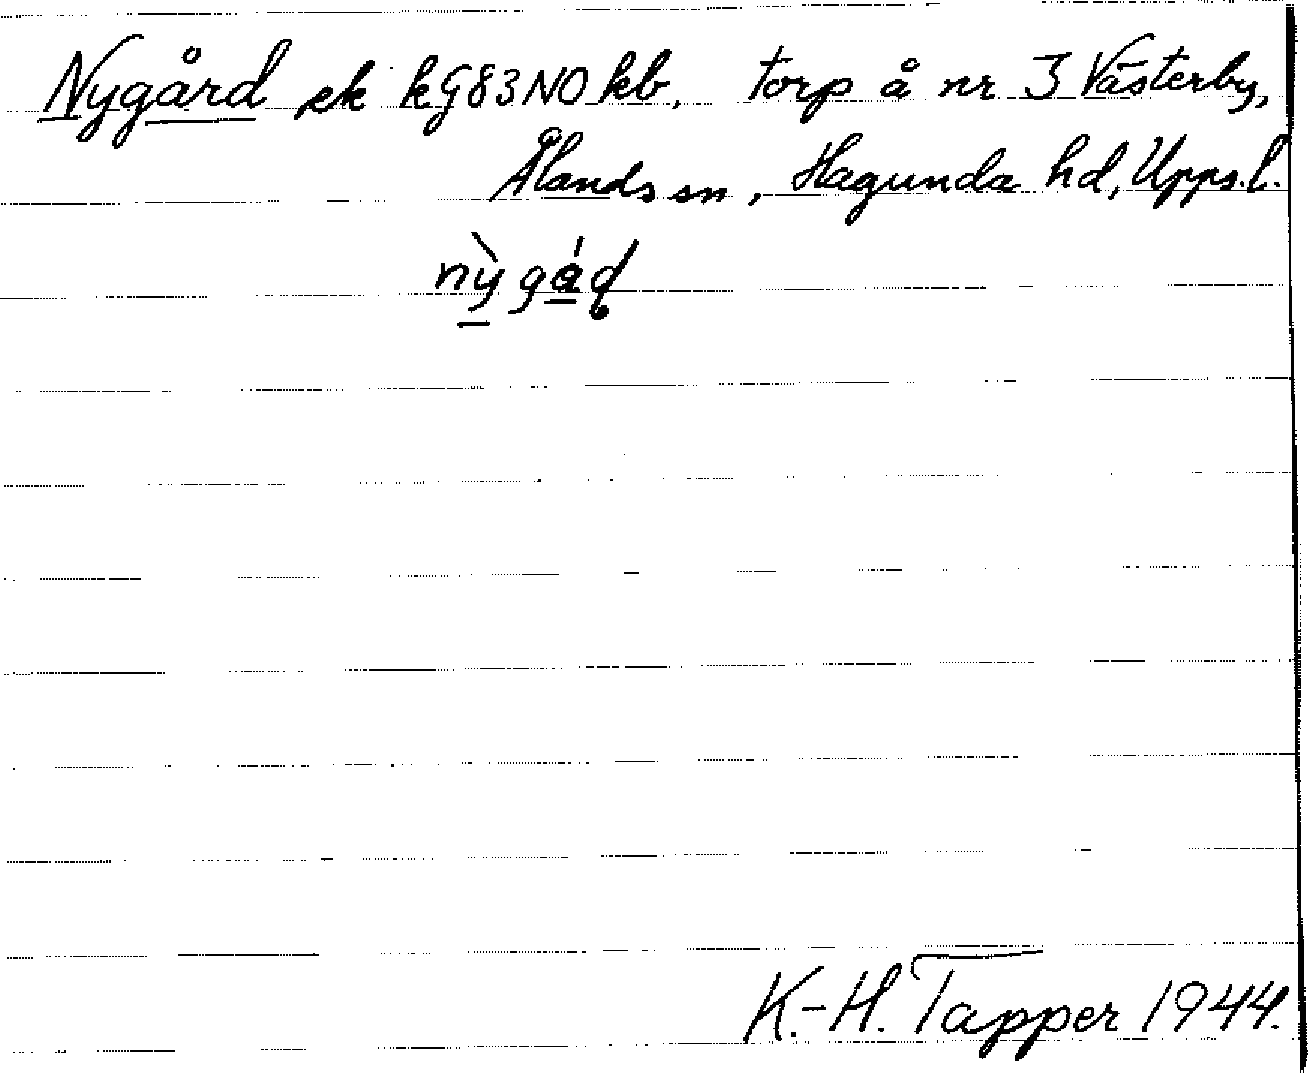 Nygård ek kG83NO kb, torp å nr 3 Västerby,
Ålands sn, Hagunda hd, Upps. l.
nỳgád
K.-H. Tapper 1944.